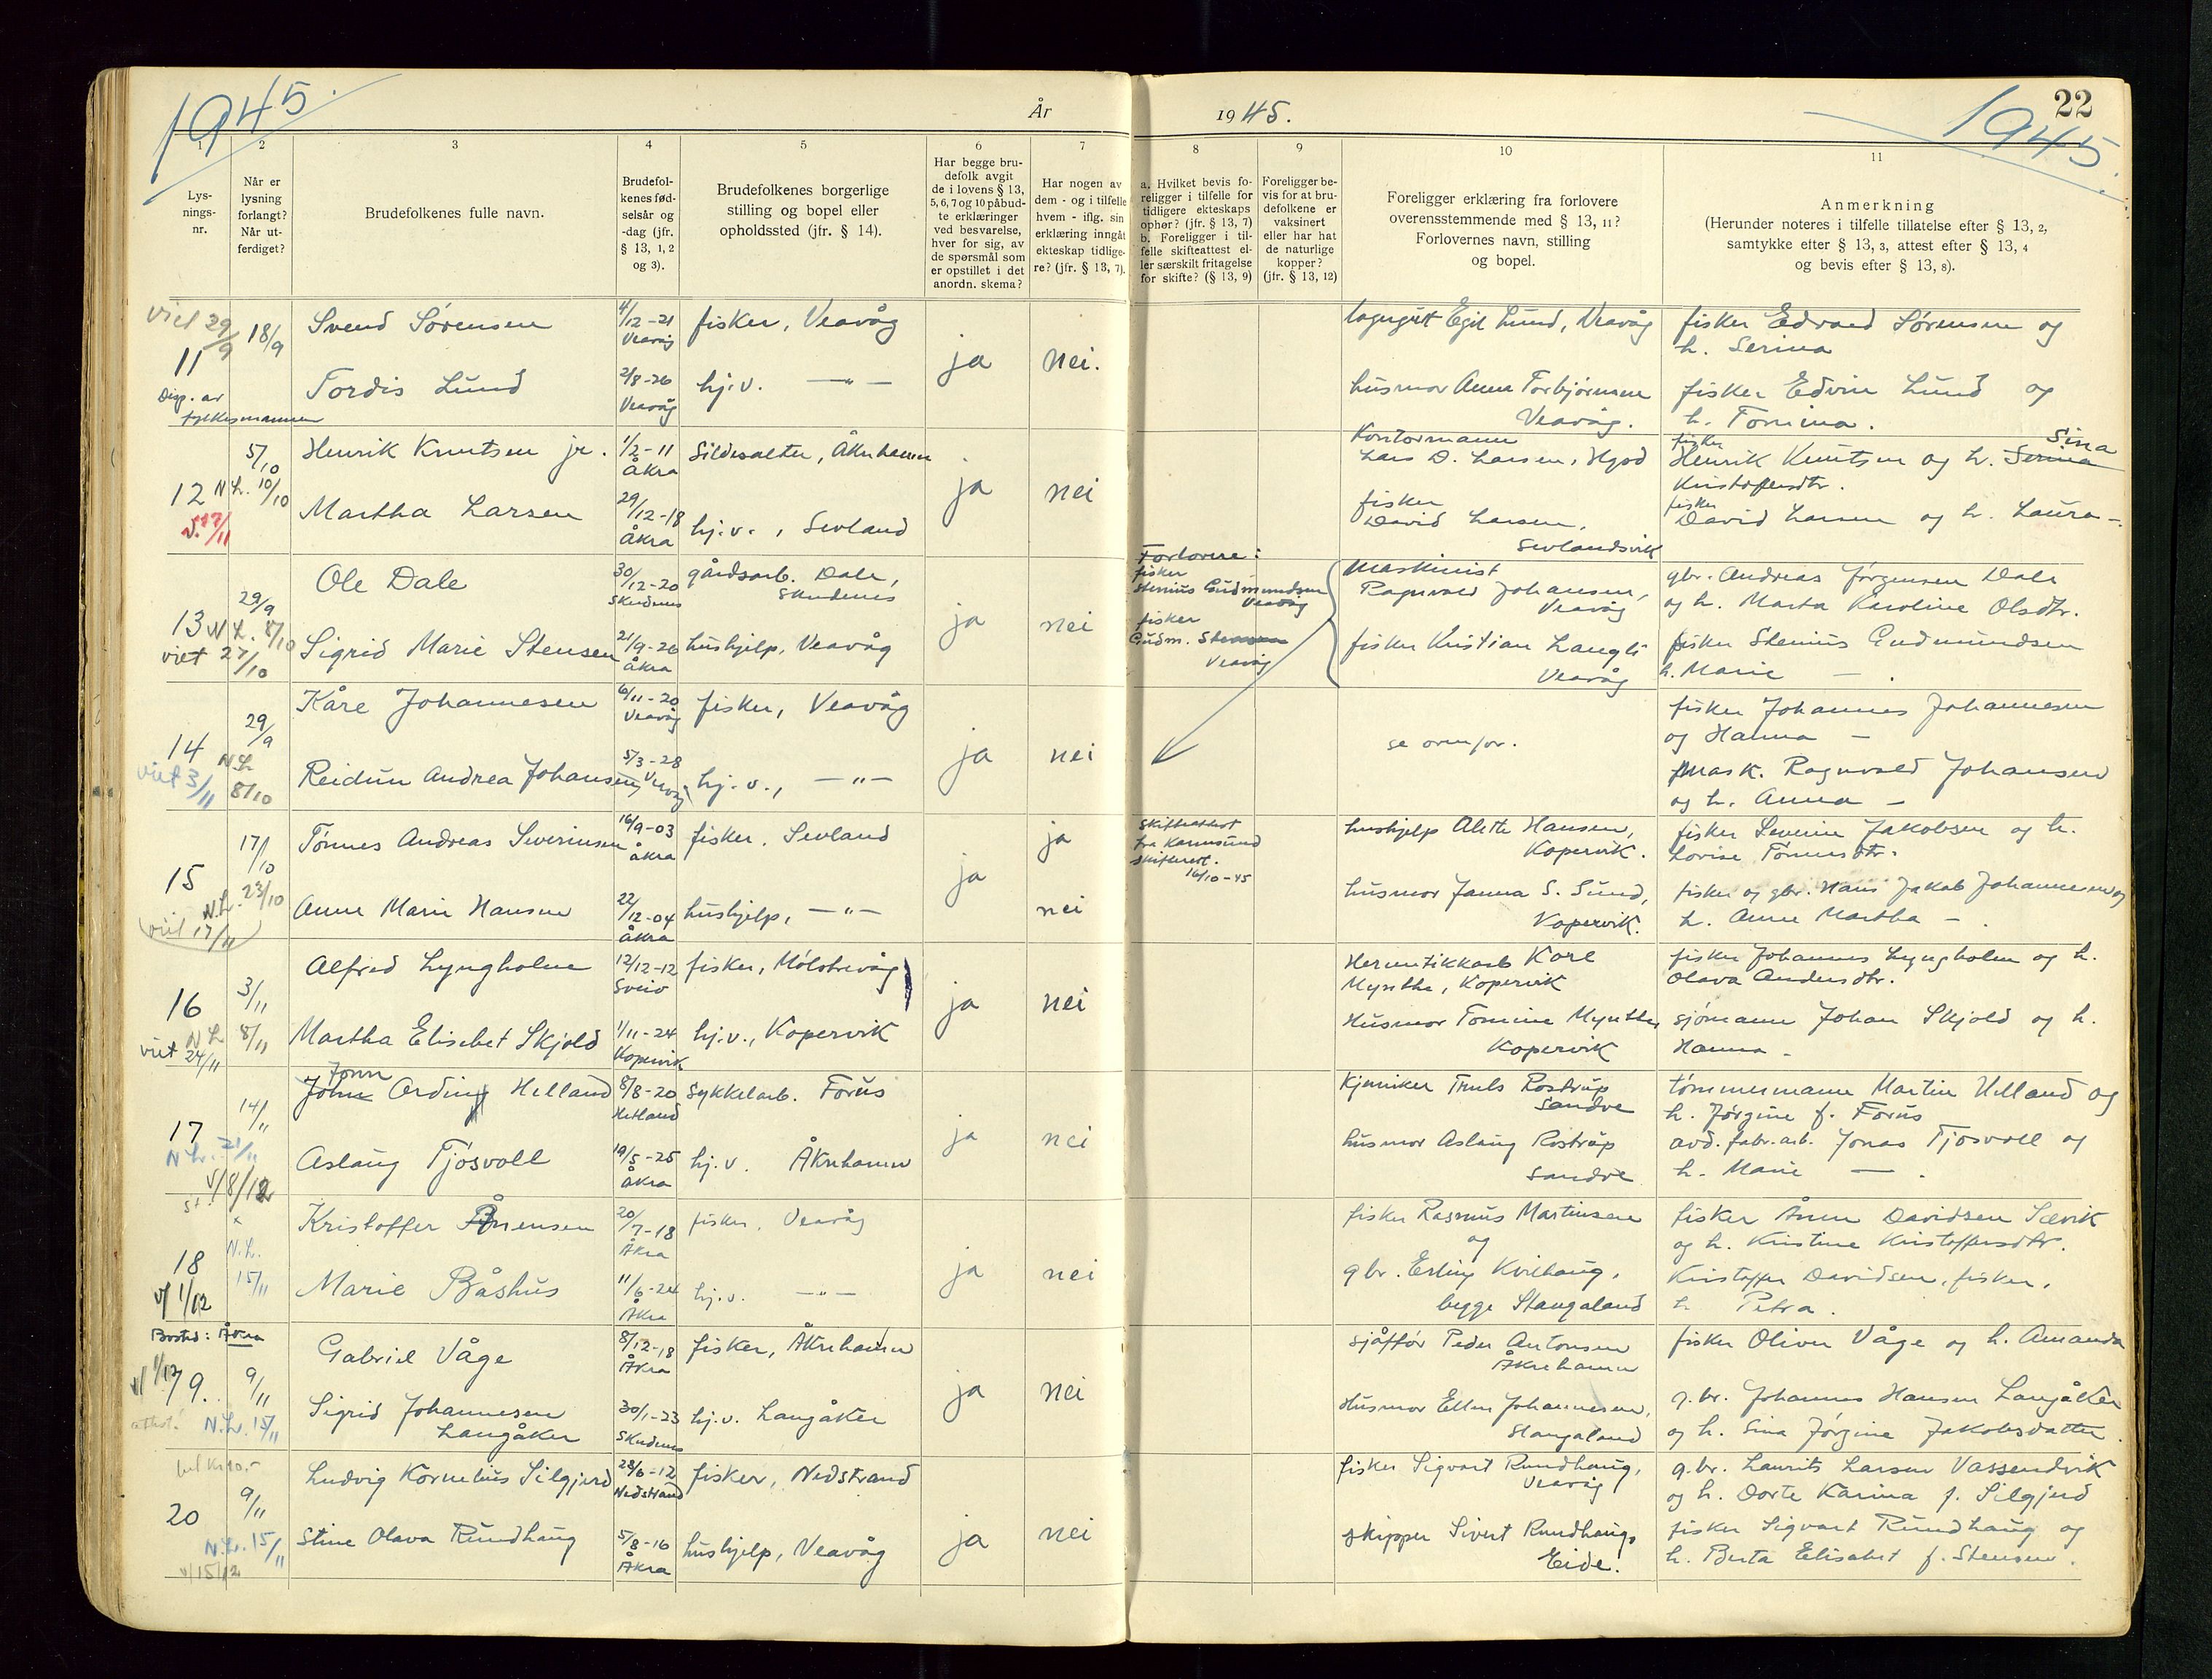 1945.
År
1945.
1945.
22
1
2
3
4
5
6
7
8
9
10
11
Lys-
nings-
nr.
Når er
lysning
forlangt?
Når ut-
ferdiget?
Brudefolkenes fulle navn.
Brudefol-
kenes fød-
selsår og
-dag (jfr.
§ 13, 1, 2
og 3).
Brudefolkenes borgerlige
stilling og bopel eller
opholdssted (jfr. § 14).
Har begge bru-
defolk avgit
de i lovens § 13,
5, 6, 7 og 10 påbud-
te erklæringer
ved besvarelse,
hver for sig, av
de spørsmål som
er opstillet i det
anordn. skema?
Har nogen av
dem - og i tilfelle
hvem - iflg. sin
erklæring inngåt
ekteskap tidlige-
re? (jfr. § 13, 7).
a. Hvilket bevis fo-
religger i tilfelle for
tidligere ekteskaps
ophør? (jfr. § 13, 7)
b. Foreligger i til-
felle skifteattest el-
ler særskilt fritagelse
for skifte? (§ 13, 9)
Foreligger be-
vis for at bru-
defolkene er
vaksinert
eller har hat
de naturlige
kopper?
(jfr. § 13, 12)
Foreligger erklæring fra forlovere
overensstemmende med § 13, 11?
Forlovernes navn, stilling
og bopel.
Anmerkning
(Herunder noteres i tilfelle tillatelse efter § 13, 2,
samtykke efter § 13, 3, attest efter § 13, 4
og bevis efter § 13, 8).
viet 29/9
11
Disp. av
fylkesmannen
18/9
Svend Sørensen
4/12-21
Veavåg
fisker, Veavåg
Tordis Lund
2/8-26
Veavåg
hj.v. —"—
ja
nei.
Egil Lund, Veavåg
husmor Anna Torbjørnsen
Veavåg.
fisker Edvard Sørensen og
h. Serina
fisker Edvin Lund og
h. Tomina.
12
5/10
N.L. 10/10
Henrik Knutsen jr.
1/2-11
Åkra
Sildesalter, Åkrehamn
Martha Larsen
29/12-18
Åkra
hj.v., Sevland
ja
nei
Kontormann
Lars D. Larsen, Hgsd
fisker
David Larsen,
Sevlandsvik
fisker
Sina
Henrik Knutsen og h. Serina
Kristoffersdtr.
fisker
David Larsen og h. Laura -.
13
29/9
N.L. 8/10
viet 27/10
Ole Dale
30/12-20
Skudenes
gårdsarb. Dale,
Skudenes
Sigrid Marie Stensen
21/9-26
Åkra
hushjelp, Veavåg
ja
nei
Forlovere:
fisker
Stenius Gudmundsen
Veavåg
fisker
Gudm. Stensen
Veavåg
Maskinist
Ragnvald Johansen,
Veavåg
fisker Kristian Langli
Veavåg
gbr. Andreas Jørgensen Dale
og h. Marta Karoline Olsdtr.
fisker Stenius Gudmundsen
h. Marie — .
14
29/9
N.L.
8/10
viet 3/11
Kåre Johannesen
6/11-20
Veavåg
fisker, Veavåg
Reidun Andrea Johansen
5/3-28
Veavåg
hj.v., —"—
ja
nei
se ovenfor.
fisker Johannes Johannesen
og Hanna —
Mask. Ragnvald Johansen
og h. Anna —
15
17/10
N.L. 23/10
(viet 17/11)
Tønnes Andreas Severinsen
16/9-03
Åkra
fisker, Sevland
Anne Marie Hansen
22/12-04
Åkra
hushjelp, —"—
ja
ja
nei
Skifteattest
fra Karmsund
skifterett.
16/10-45
hushjelp Alette Hansen,
Kopervik.
husmor Janna S. Sund,
Kopervik.
fisker Severin Jakobsen og h.
Lovise Tønnesdtr.
fisker og gbr. Hans Jakob Johannesen og
h. Anne Martha —
16
3/11
N.L. 8/11
viet 24/11
Alfred Lyngholm
12/12-12
Sveio
fisker, Mølstrevåg
Martha Elisebet Skjold
1/11-24
Kopervik
hj.v., Kopervik
ja
nei
Hermetikkarb Kåre
Mynthe, Kopervik
Husmor Tomine Mynthe,
Kopervik
fisker Johannes Lyngholm og h.
Olava Andersdtr.
sjømann Johan Skjold og h.
Hanna -
17
14/11
N.L. 21/11
v/ 8/12
Jonn
John Arding Helland
8/8-20
Hetland
Sykkelarb. Forus
Aslaug Tjøsvoll
19/5-25
Åkra
hj.v. Åkrehamn
ja
nei
Kjemiker Truls Rostrup
Sandve
husmor Aslaug Rostrup
Sandve
tømmermann Martin Helland og
h. Jørgine f. Forus
avd. fabr.arb. Jonas Tjøsvoll og
h. Marie — .
18
N.L.
15/11
v/ 1/12
Kristoffer Årnensen
20/7-18
Åkra
fisker, Veavåg
Marie Båshus
11/6-24
Åkra
hj.v. —"—
ja
nei
fisker Rasmus Martinsen
og
gbr. Erling Kvilhaug,
begge Stangaland
fisker Årnen Davidsen Sævik
og h. Kristine Kristoffersdtr.
Kristoffer Davidsen, fisker,
h Petra.
Bosted: Åkra
v/ 1/12
19.
9/11
N.L. 15/11
Gabriel Våge
8/12-18
Åkra
fisker, Åkrehamn
Sigrid Johannesen
Langåker
30/1-23
Skudenes
hj.v. Langåker
ja
nei
sjåffør Peder Antonsen
Åkrehamn
Husmor Ellen Johannesen,
Stangaland
fisker Oliver Våge og h. Amanda
g.br. Johannes Hansen Langåker
og h. Sina Jørgine Jakobsdatter.
20
9/11
N.L. 15/11
v/15/12
Ludvig Kornelius Silgjerd
28/6-12
Nedstrand
fisker, Nedstrand
Stine Olava Rundhaug
5/8-16
Åkra
hushjelp, Veavåg
ja
nei
fisker Sigvart Rundhaug,
Veavåg
skipper Sivert Rundhaug,
Eide.
g.br. Laurits Larsen Vassendvik
og h. Dorte Karina f. Silgjerd
fisker Sigvart Rundhaug og
h. Berta Elisabet f. Stensen.